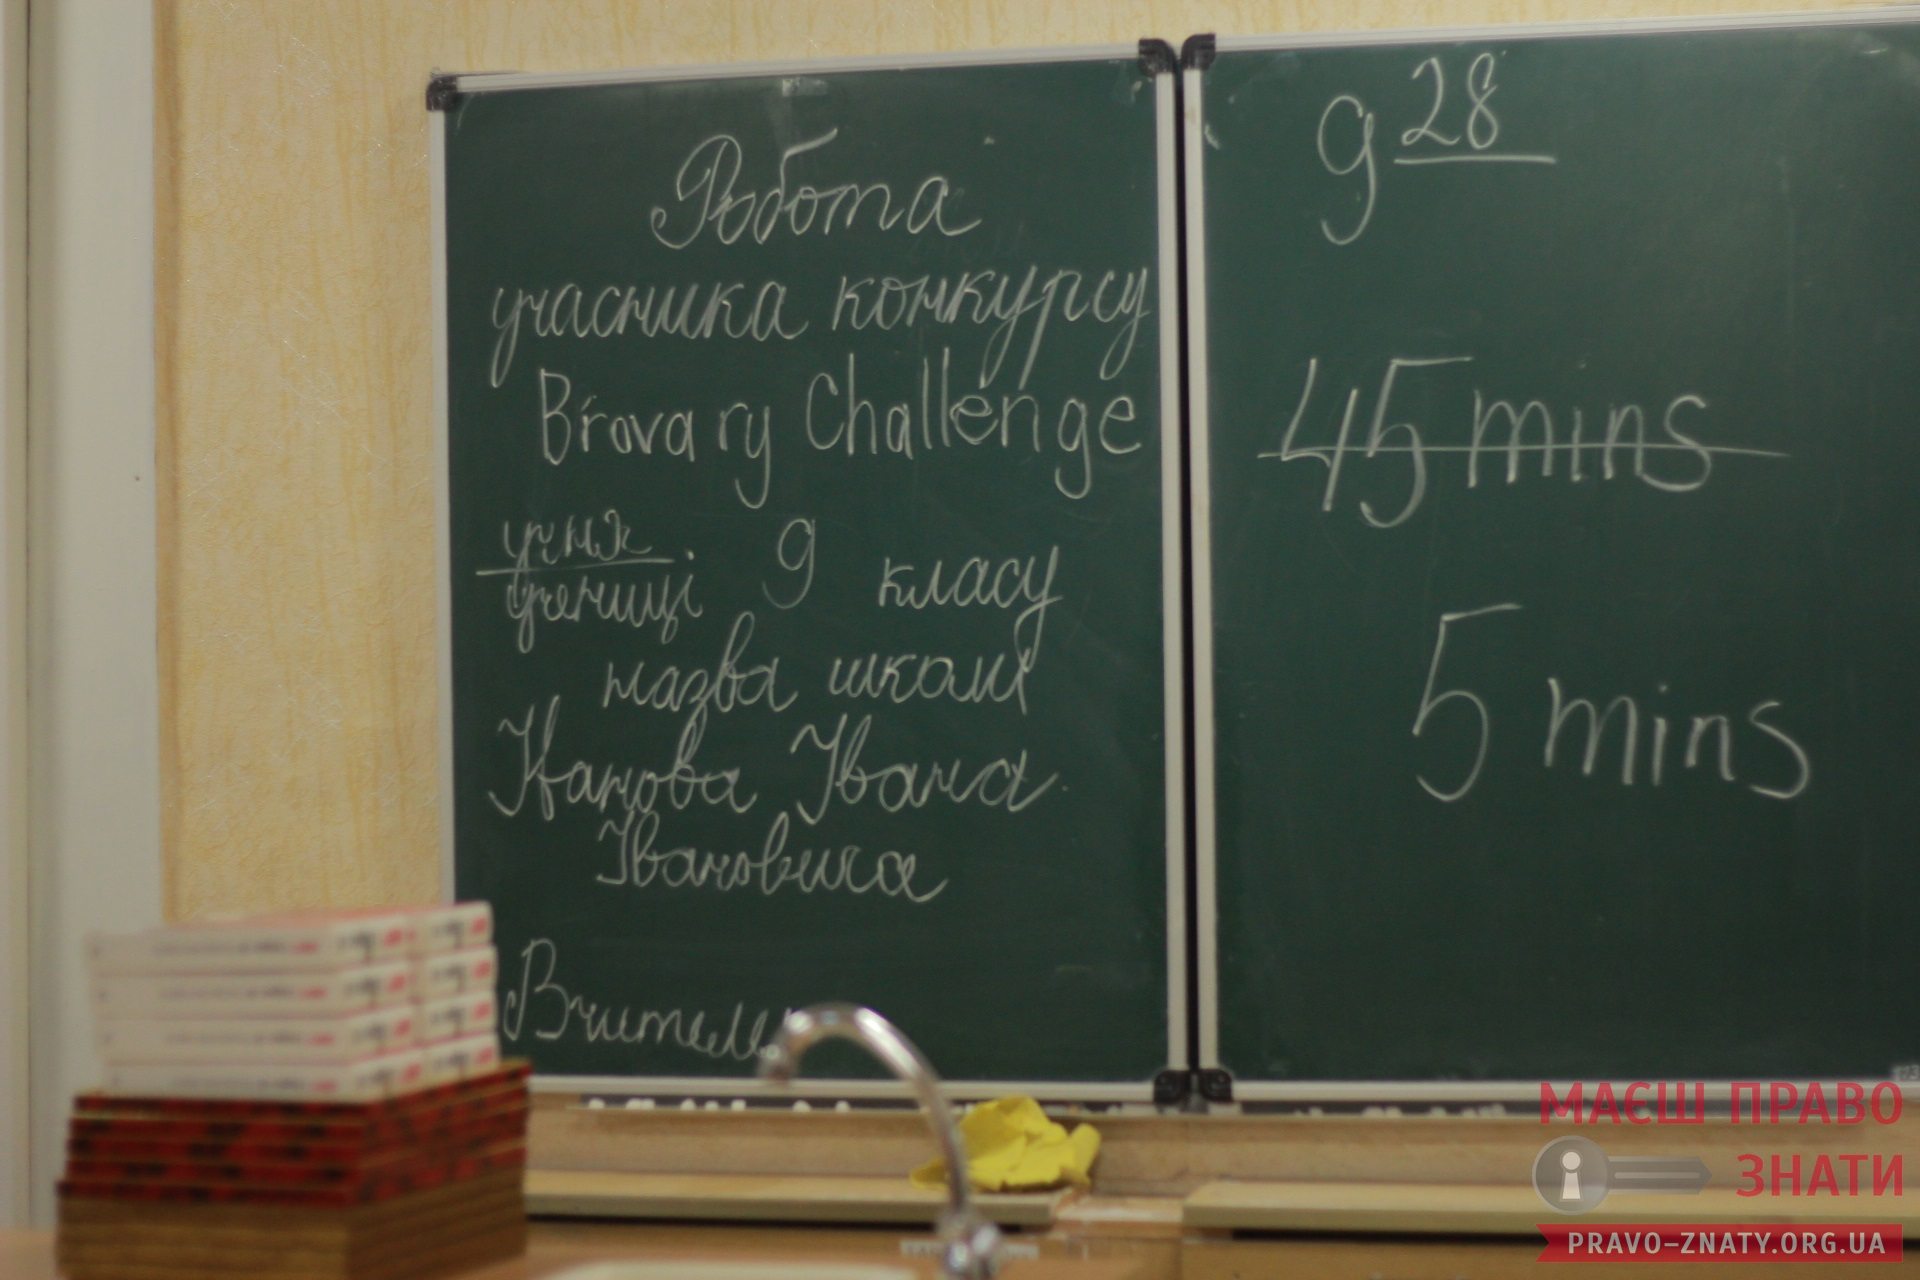 Робота
учасника конкурсу
Brovary Challenge
учня
учениці 9 класу
назва школи
Іванова Івана
Івановича
Вчитель
9 28
45 mins
5 mins
МАЄШ ПРАВО
ЗНАТИ
PRAVO-ZNATY.ORG.UA